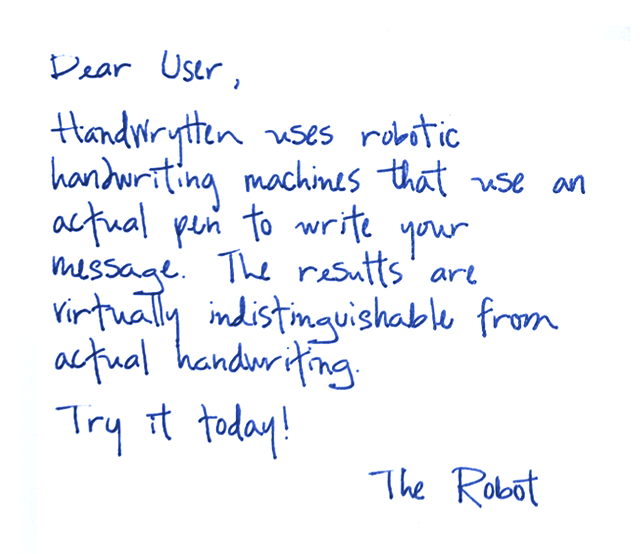 Dear User,
Handwrytten uses robotic
handwriting machines that use an
actual pen to write your
message. The results are
virtually indistinguishable from
actual handwriting.
Try it today!
The Robot